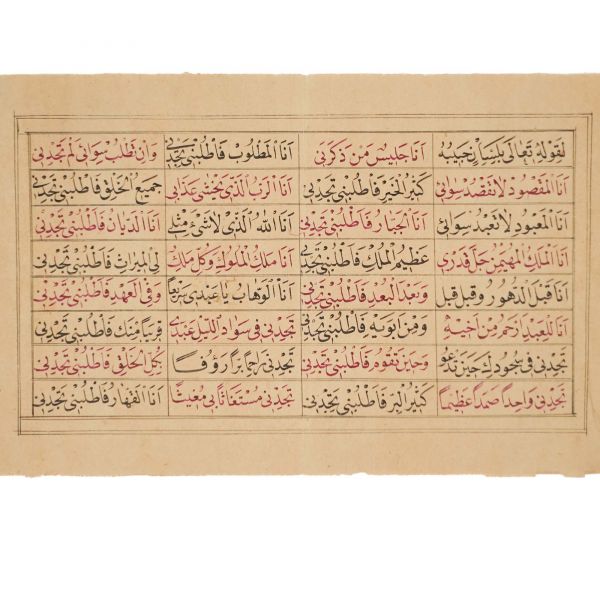 لقوله تعالى بلسان نجيبه انا جليس من ذكرني انا المطلوب فاطلبني تجدني وان تطلب سوائي لم تجدني
انا المقصود لا تقصد سوائي كثير الخير فاطلبني تجدني انا الرب الذي يخشى عذابي جميع الخلق فاطلبني تجدني
انا المعبود لا تعبد سوائي انا الجبار فاطلبني تجدني انا الله الذي لا شئ مثلي انا الديان فاطلبني تجدني
انا الملك المهيمن جل قدري عظيم الملك فاطلبني تجدني انا ملك الملوك وكل ملك لي الميراث فاطلبني تجدني
انا قبل الدهور وقبل قبل وبعد البعد فاطلبني تجدني انا الوهاب يا عبدي سريعاً وفي العهد فاطلبني تجدني
انا للعبد ارحم من اخيه ومن ابويه فاطلبني تجدني تجدني في سواد الليل عبدي قريباً منك فاطلبني تجدني
تجدني في سجودك حين تدعو وحين تقوم فاطلبني تجدني تجدني راحماً براً رؤفاً بكل الخلق فاطلبني تجدني
تجدني واحداً صمداً عظيماً كثير البر فاطلبني تجدني تجدني مستغاثاً بي مغيثاً انا القهار فاطلبني تجدني